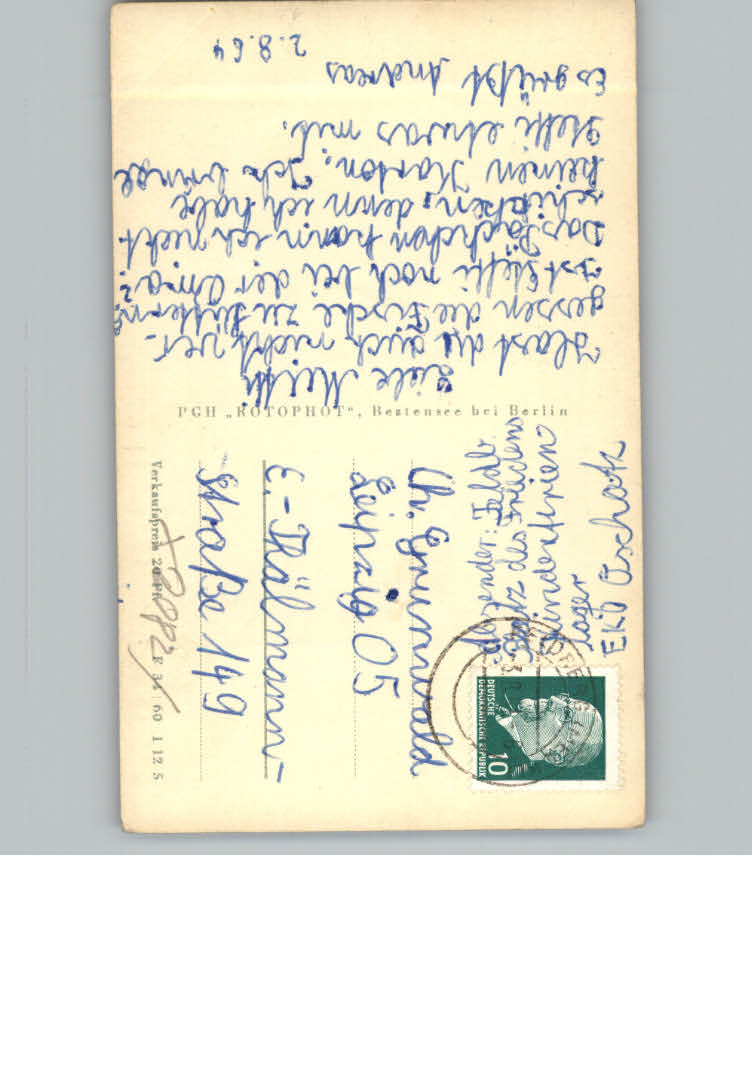 Liebe Mutti
Hast du auch nicht ver-
gessen die Fische zu füttern?
Ist Steffi noch bei der Oma?
Das Päckchen kann ich nicht
schicken, denn ich habe
keinen Karton. Ich bringe
Steffi etwas mit.
Es grüßt Andreas
2.8.64
PGH „ROTOPHOT“, Bestensee bei Berlin
Absender:
Platz des Friedens
Kinderferien
lager
EKD Oschatz
DEUTSCHE
DEMOKRATISCHE REPUBLIK
10
Chr. Grunwald
Leipzig 05
E.-Thälmann-
Straße 149
Verkaufspreis 20 Pf.
F 34 60 1 12 5